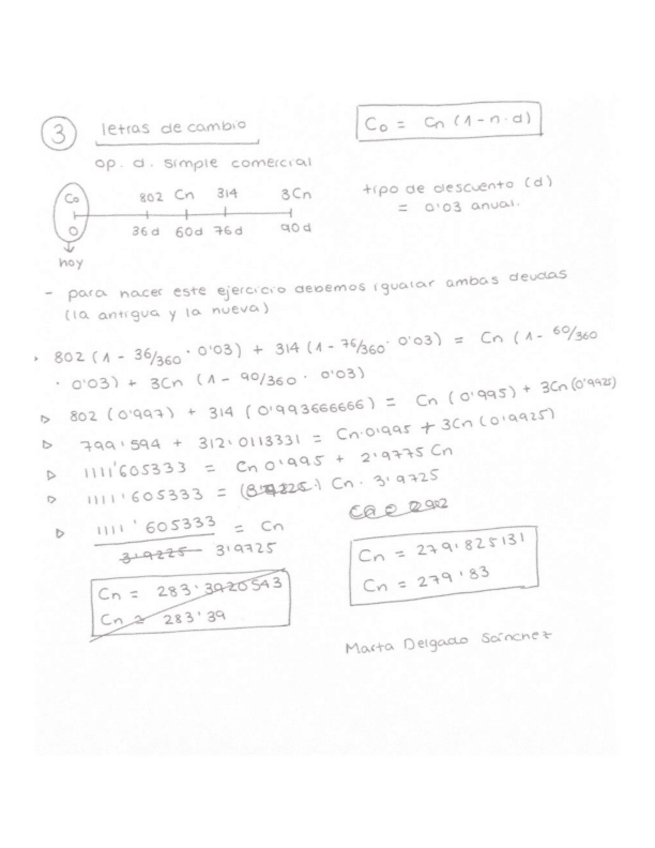 3 letras de cambio
Co = Cn (1-n·d)
op. d. simple comercial
Co 802 Cn 314 3Cn
0 36d 60d 76d 90d
hoy
tipo de descuento (d)
= 0'03 anual.
- para hacer este ejercicio debemos igualar ambas deudas
(la antigua y la nueva)
802 (1 - 36/360 · 0'03) + 314 (1 - 76/360 · 0'03) = Cn (1 - 60/360
· 0'03) + 3Cn (1 - 90/360 · 0'03)
▷ 802 (0'997) + 314 (0'993666666) = Cn (0'995) + 3Cn (0'9925)
▷ 799'594 + 312'0113331 = Cn·0'995 + 3Cn (0'9925)
▷ 1111'605333 = Cn 0'995 + 2'9775 Cn
▷ 1111'605333 = (3'9225·) Cn · 3'9725
▷ 1111'605333 = Cn
3'9225 3'9725
Cn = 283'3920543
Cn = 283'39
Cn = 279'825131
Cn = 279'83
Marta Delgado Sánchez